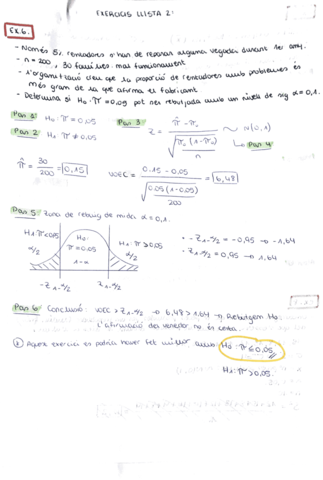 EXERCICIS LLISTA 2:
Ex.6.
- Només 5% rentadores s'han de reparar alguna vegada durant 1er any.
- n = 200, 30 famílies: mal funcionament
- L'organització creu que la proporció de rentadores amb problemes és
més gran de la que afirma el fabricant
- Determina si H0: π = 0,05 pot ser rebutjada amb un nivell de sig α = 0,1.
Pas 1: H0: π = 0,05
Pas 2: H1: π ≠ 0,05
Pas 3: Z = π̂ - π0 / √(π0 (1-π0) / n) ~ N(0,1)
Pas 4:
π̂ = 30/200 = 0,15
VOEC = 0.15 - 0.05 / √(0,05 (1-0,05) / 200) = 6,48
Pas 5: Zona de rebuig de mida α = 0,1.
H1: π<0,05
α/2
H0:
π = 0,05
1-α
H1: π>0,05
α/2
-Z1-α/2
Z1-α/2
· -Z1-α/2 = -0,95 → -1,64
· Z1-α/2 = 0,95 → 1,64
Pas 6: Conclusió: VOEC > Z1-α/2 → 6,48 > 1,64 → Rebutgem H0.
L'afirmació del venedor no és certa.
Aquest exercici es podria haver fet millor amb H0: π ≤ 0,05
H1: π > 0,05.